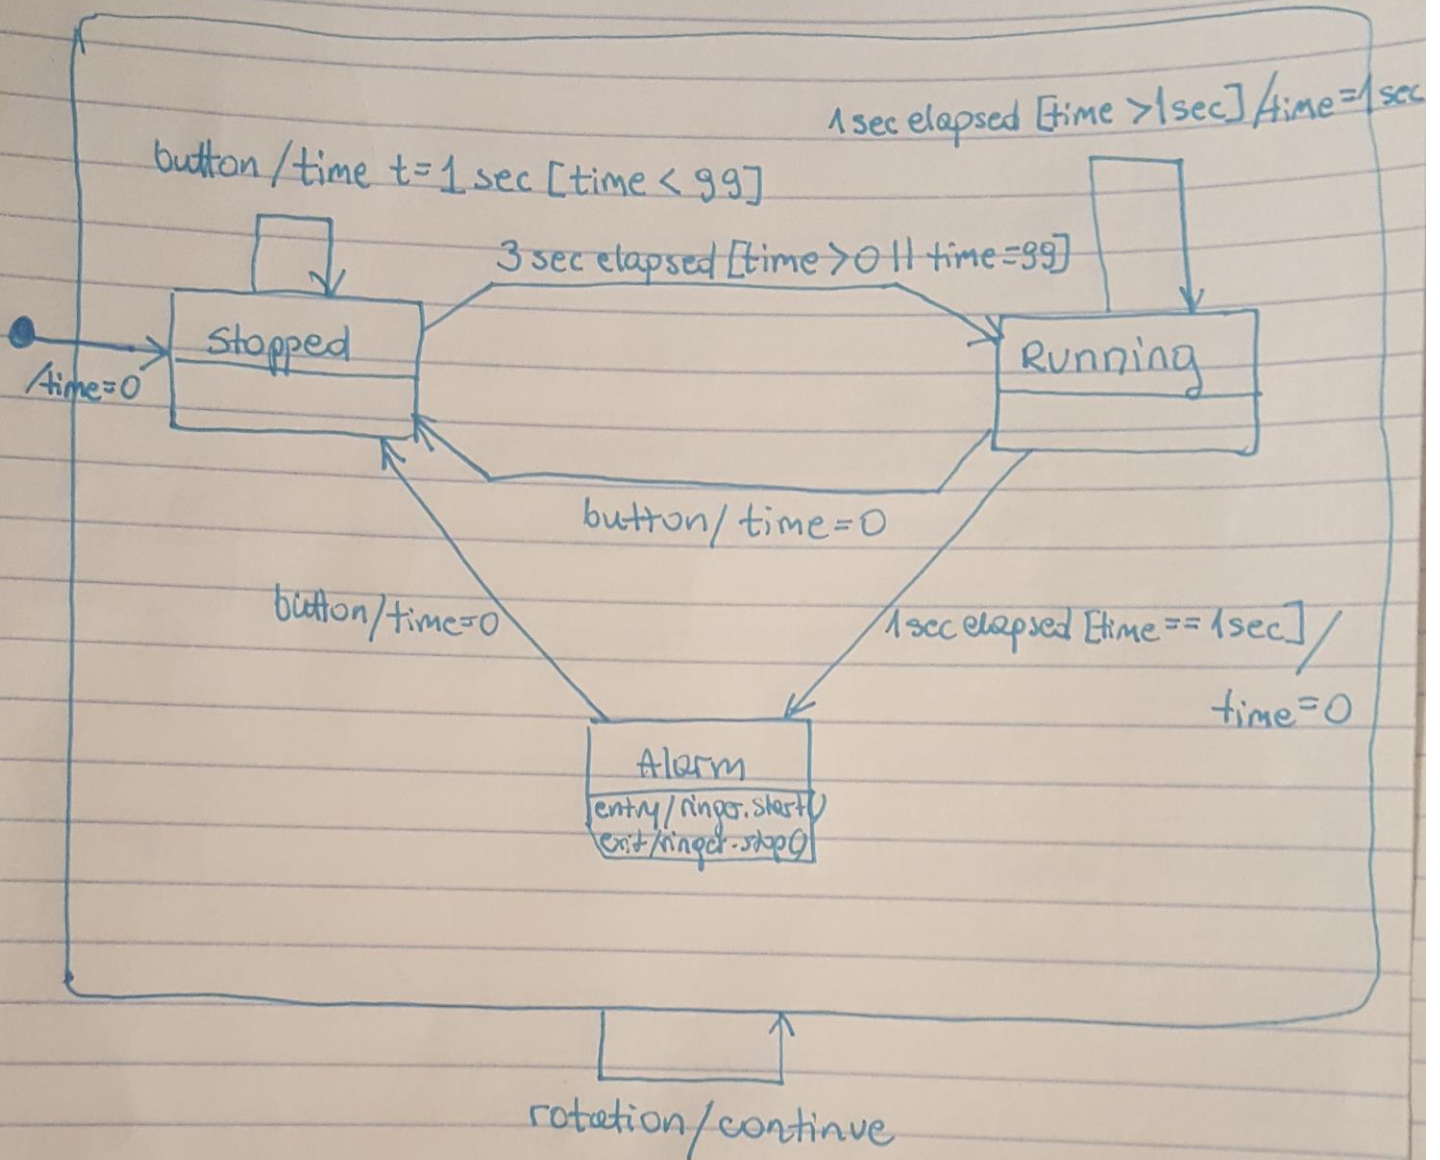 1sec elapsed [time >1sec] /time=1sec
button /time t=1 sec [time < 99]
3 sec elapsed [time >0 || time=99]
Stopped
Running
/time=0
button/ time=0
button/time=0
1sec elapsed [time == 1sec] /
time=0
Alarm
entry/ringer.start()
exit/ringer.stop()
rotation/continue